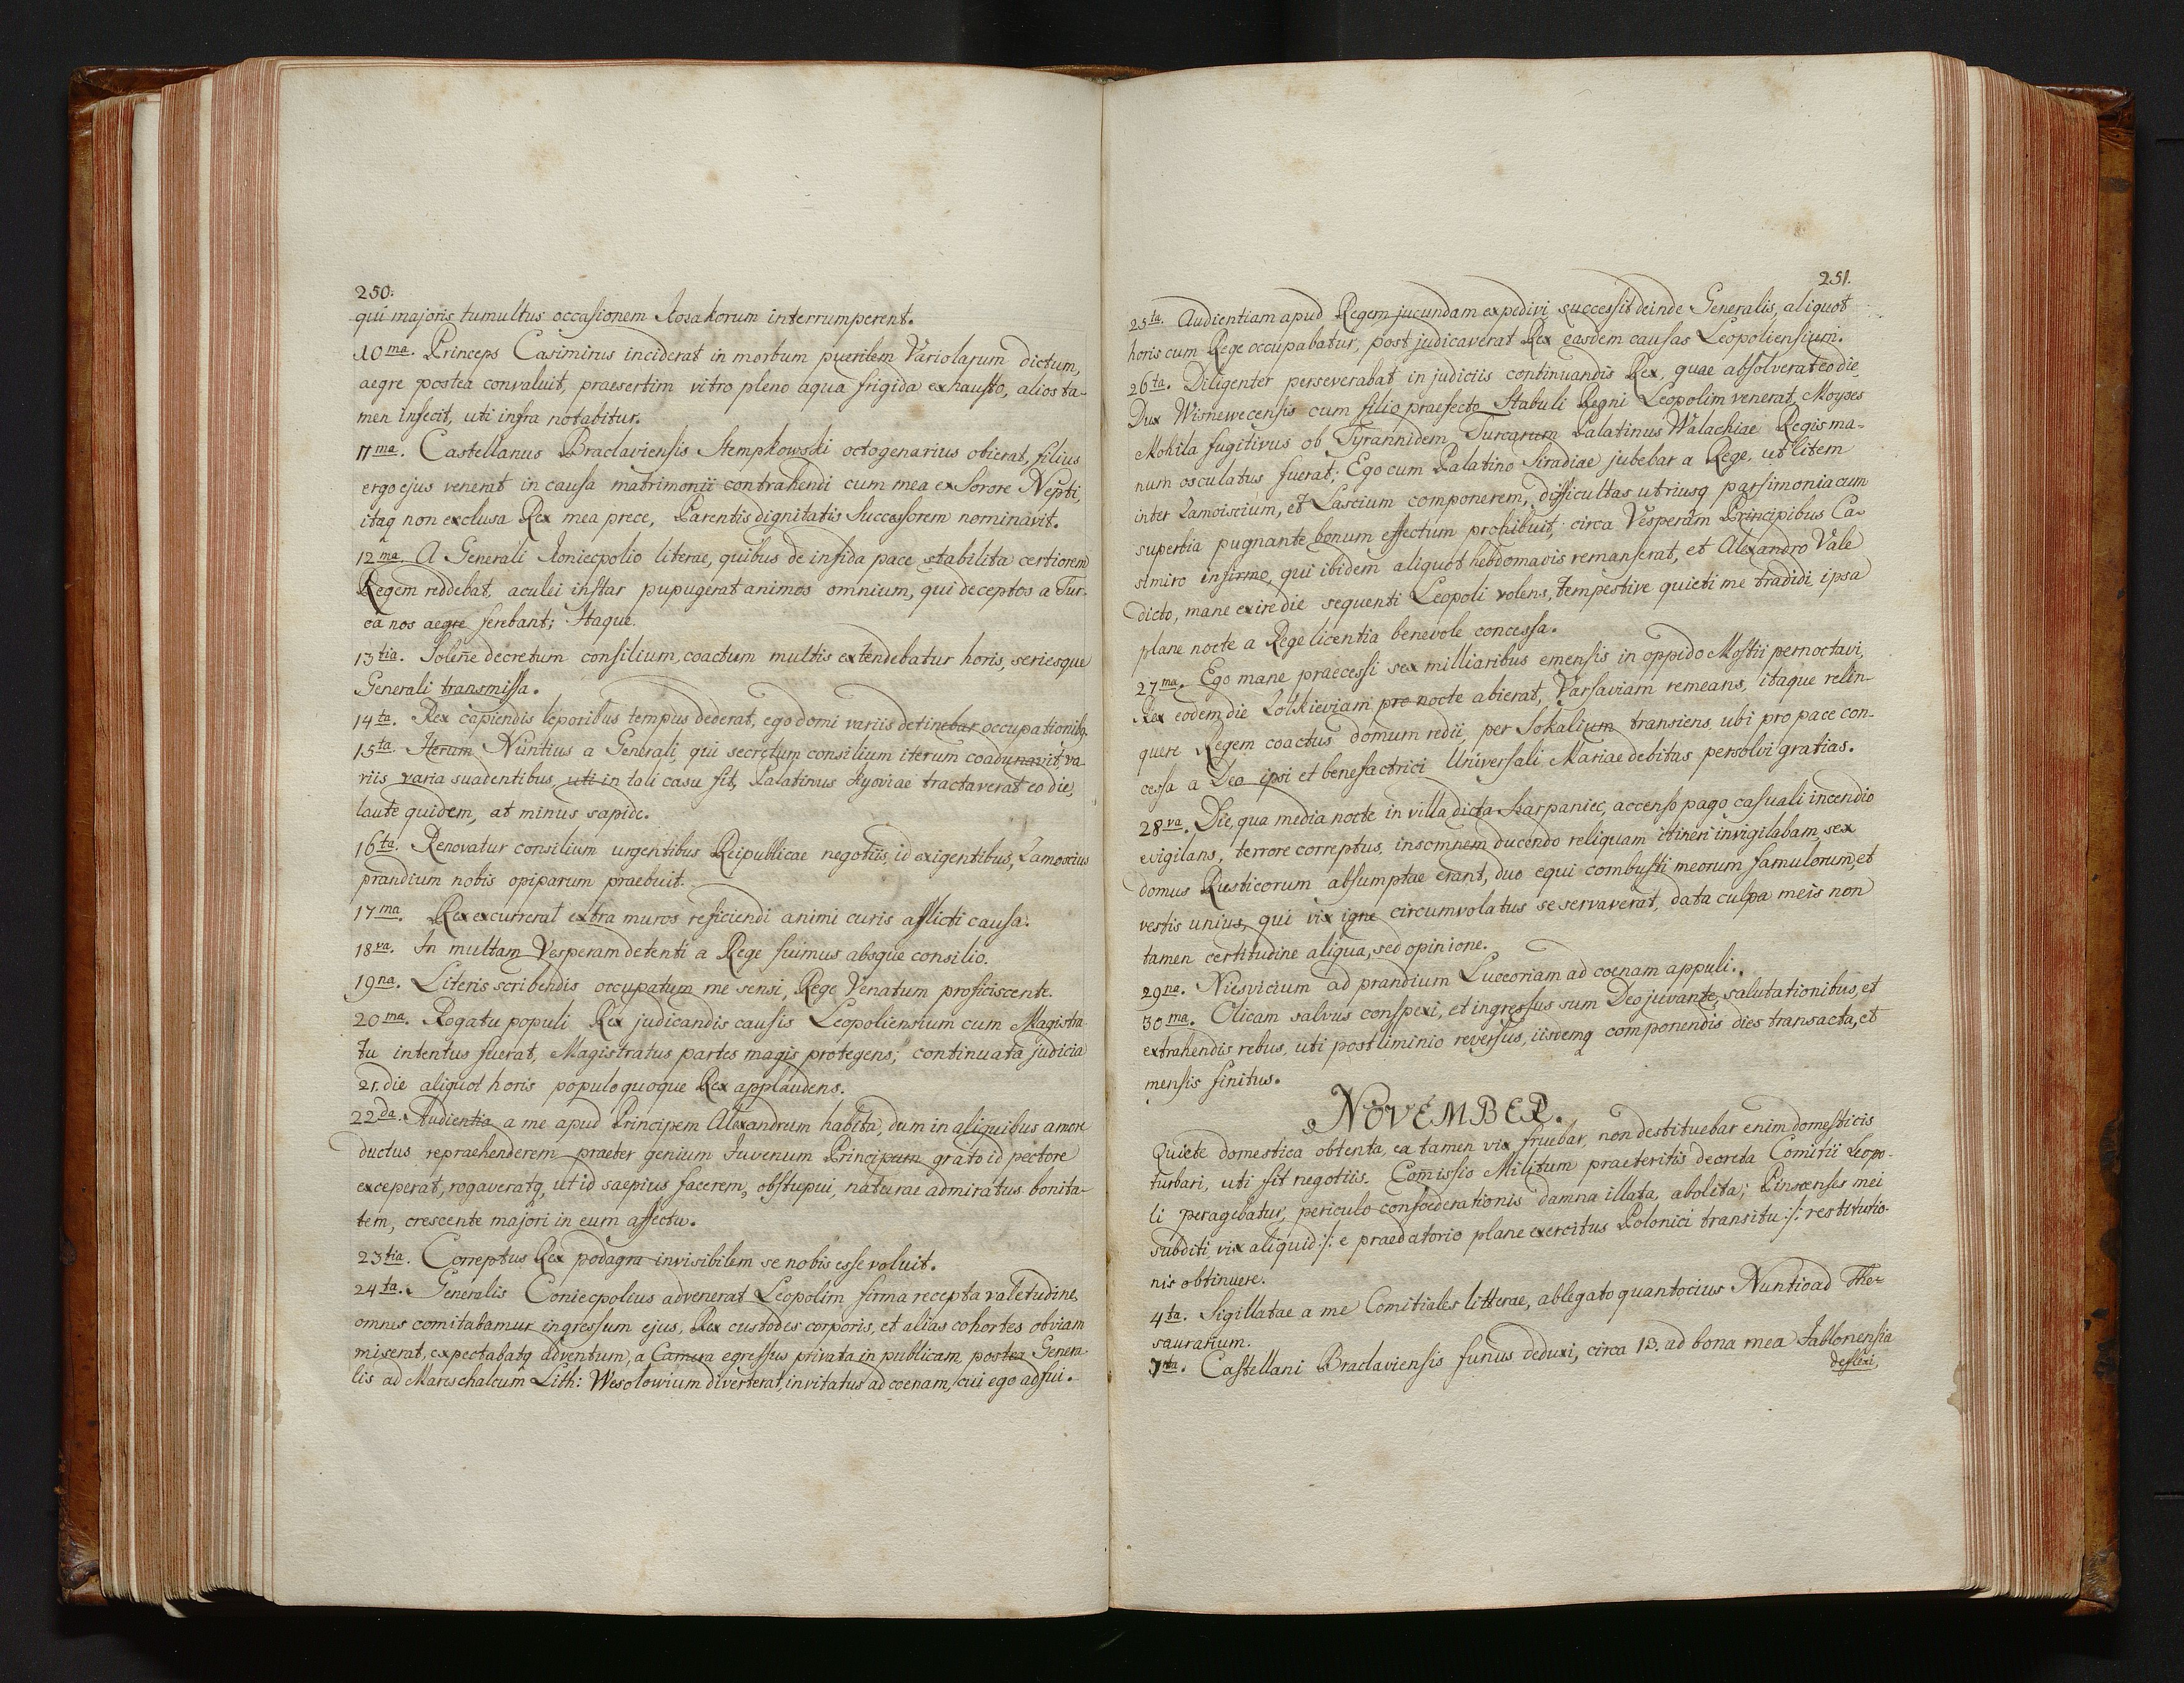 250.
qui majoris tumultus occasionem Kosakorum interrumperent.
10ma. Princeps Casimirus inciderat in morbum puerilem Variolarum dictum,
aegre postea convaluit, praesertim vitro pleno aqua frigida exhausto, alios ta-
men infecit, uti infra notabitur.
11ma. Castellanus Braclaviensis Stempkowski octogenarius obierat, filius
ergo ejus venerat in causa matrimonii contrahendi cum mea ex Sorore Nepti,
itaq non exclusa Rex mea prece, Parentis dignitatis Successorem nominavit.
12ma. A Generali Koniecpolio literae, quibus de infida pace stabilita certiorem
Regem reddebat, aculei instar pupugerat animos omnium, qui deceptos a Tur-
ca nos aegre ferebant; Itaque.
13tia. Soleñe decretum consilium, coactum multis extendebatur horis, seriesque
Generali transmissa.
14ta. Rex capiendis leporibus tempus dederat, ego domi variis detinebar occupationibq.
15ta. Iterum Nuntius a Generali, qui secretum consilium iterum coadunavit, va
riis varia suadentibus, uti in tali casu fit, Palatinus Kyoviae tractaverat eo die,
laute quidem, at minus sapide.
16ta. Renovatur consilium urgentibus Reipublicae negotiis, id exigentibus, Zamoscius
prandium nobis opiparum praebuit.
17ma. Rex excurrerat extra muros reficiendi animi curis afflicti causa.
18va. In multam Vesperam detenti a Rege fuimus absque consilio.
19na. Literis scribendis occupatum me sensi, Rege Venatum proficiscente.
20ma. Rogatu populi Rex judicandis causis Leopoliensium cum Magistra
tu intentus fuerat, Magistratus partes magis protegens; continuata judicia
21. die aliquot horis populo quoque Rex applaudens.
22da. Audientia a me apud Principem Alexandrum habita, dum in aliquibus amore
ductus repraehenderem praeter genium Juvenum Principum grato id pectore
exceperat, rogaveratq, ut id saepius facerem, obstupui, naturae admiratus bonita-
tem, crescente majori in eum affectu.
23tia. Correptus Rex podagra invisibilem se nobis esse voluit.
24ta. Generalis Coniecpolius advenerat Leopolim firma recepta valetudine,
omnes comitabamur ingressum ejus, Rex custodes corporis, et alias cohortes obviam
miserat, expectabatq adventum, a Camera egressus privata in publicam, postea Genera
lis ad Mareschalcum Lith: Wesolowium diverterat, invitatus ad coenam, cui ego adfui.
251.
25ta. Audientiam apud Regem jucundam expedivi, successit deinde Generalis, aliquot
horis cum Rege occupabatur, post judicaverat Rex easdem causas Leopoliensium.
26ta. Diligenter perseverabat in judiciis continuandis Rex, quae absolverat eo die,
Dux Wisnewecensis cum filio praefecto Stabuli Regni Leopolim venerat, Moyses
Mohila fugitivus ob Tyrannidem Turcarum Palatinus Walachiae Regis ma-
num osculatus fuerat; Ego cum Palatino Siradiae jubebar a Rege, ut litem
inter Zamoiscium, et Lascium componerem, difficultas utriusq parsimonia cum
superbia pugnante bonum effectum prohibuit, circa Vesperam Principibus Ca-
simiro infirmo, qui ibidem aliquot hebdomadis remanserat, et Alexandro Vale
dicto, mane exire die sequenti Leopoli volens, tempestive quieti me tradidi, ipsa
plane nocte a Rege licentia benevole concessa.
27ma. Ego mane praecessi sex milliaribus emensis in oppido Mostii pernoctavi,
Rex eodem die Zolkieviam pro nocte abierat, Varsaviam remeans, itaque relin-
quere Regem coactus domum redii, per Sokalium transiens, ubi pro pace con-
cessa a Deo ipsi et benefactrici Universali Mariae debitas persolvi gratias.
28va. Die, qua media nocte in villa dicta Skarpaniec, accenso pago casuali incendio
evigilans, terrore correptus, insomnem ducendo reliquam itineri invigilabam, sex
domus Rusticorum absumptae erant, duo equi combusti meorum famulorum, et
vestis unius, qui vix igne circumvolatus se servaverat, data culpa meis non
tamen certitudine aliqua, sed opinione.
29na. Niesvicium ad prandium Luceoriam ad coenam appuli.
30ma. Olicam salvus conspexi, et ingressus sum Deo juvante, salutationibus, et
extrahendis rebus, uti postliminio reversus, iisdemq componendis dies transacta, et
mensis finitus.
NOVEMBER.
Quiete domestica obtenta, ea tamen vix fruebar, non destituebar enim domesticis
turbari, uti fit negotiis. Comissio Militum praeteritis decreta Comitii Leopo-
li peragebatur, periculo confoederationis damna illata, abolita; Pinscenses mei
subditi vix aliquid :/: e praedatorio plane exercitus Polonici transitu :/: restitutio-
nis obtinuere.
4ta. Sigillatae a me Comitiales litterae, ablegato quantocius Nuntio ad The-
saurarium.
7ma. Castellani Braclaviensis funus deduxi, circa 13. ad bona mea Jablonensia
deflexi,